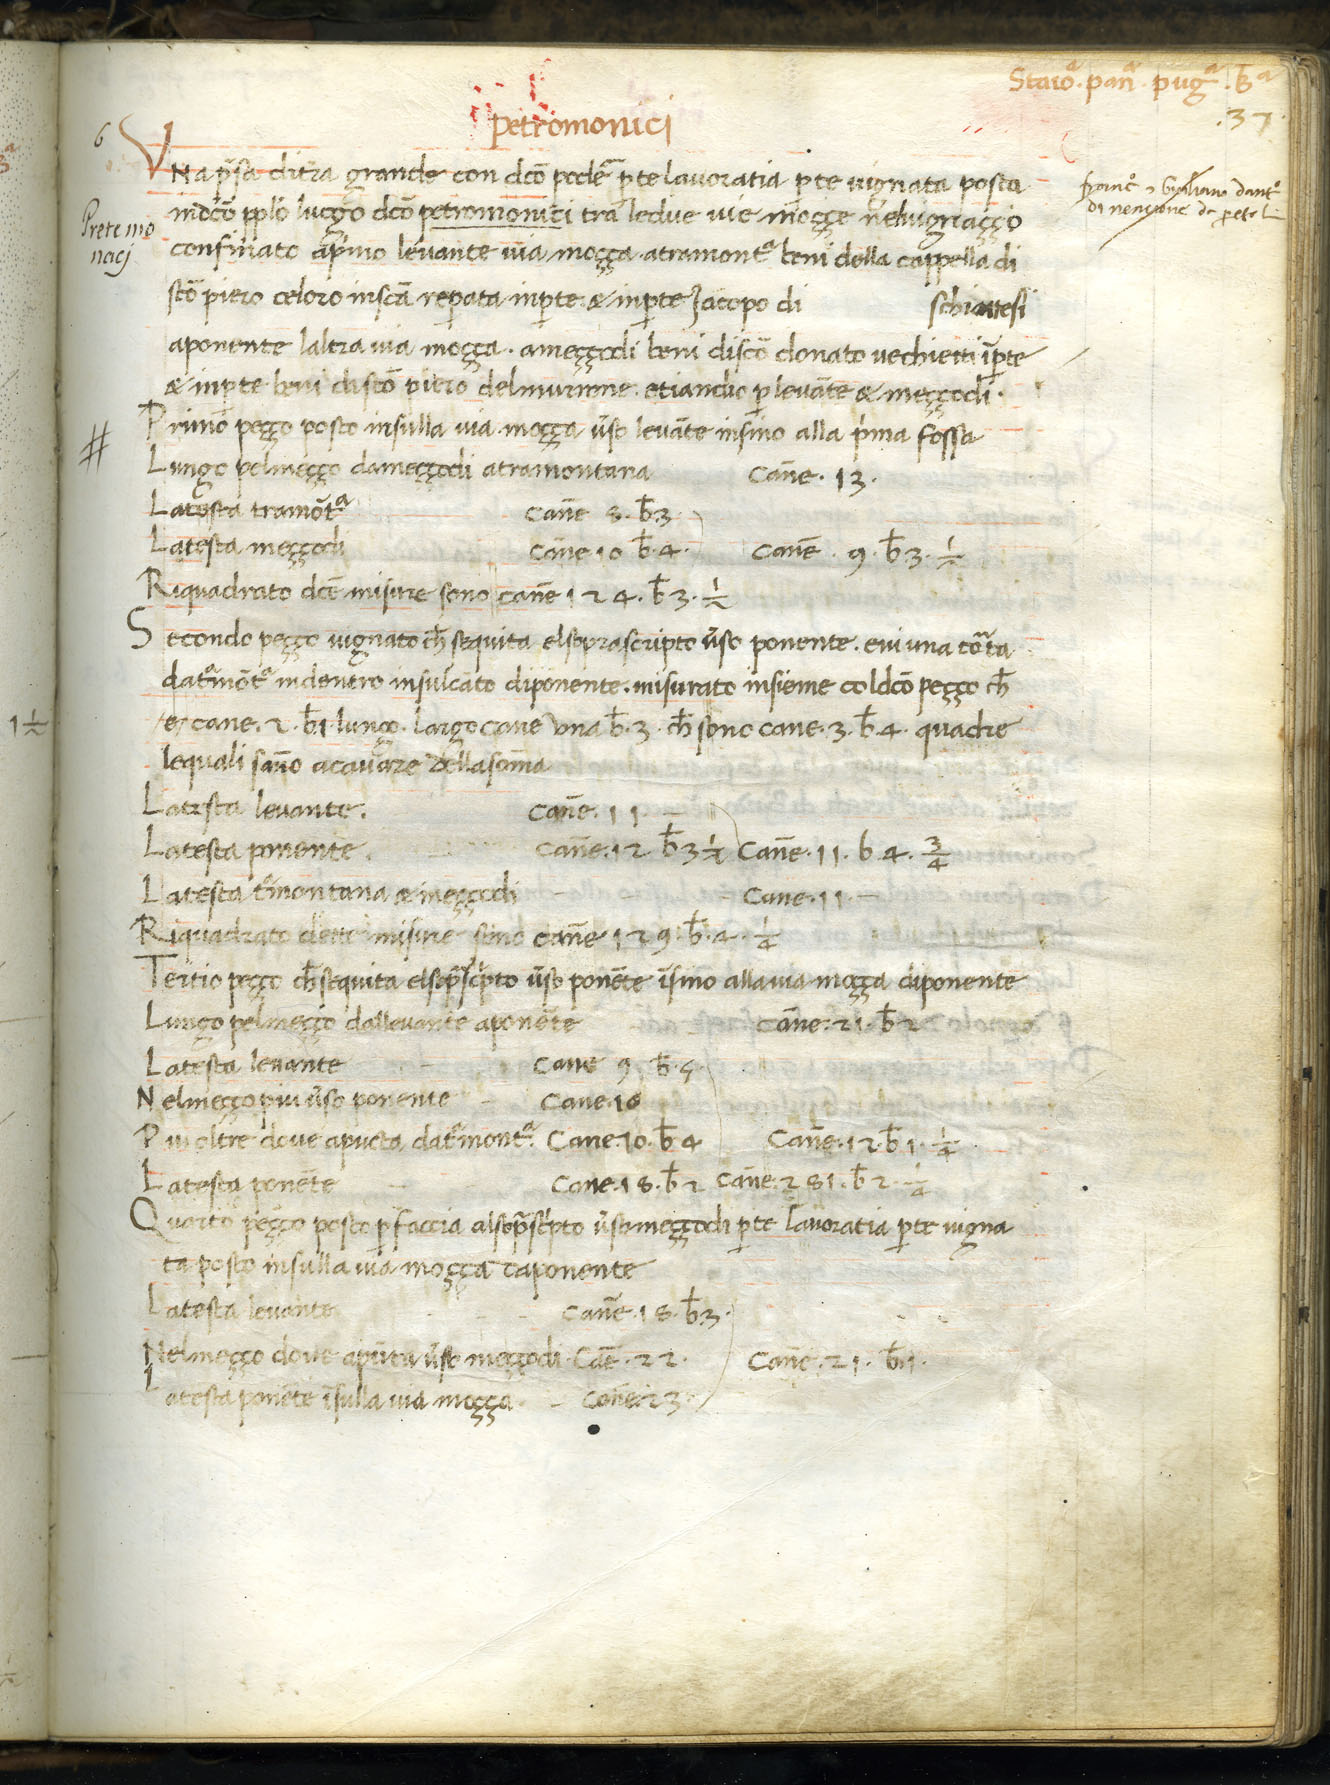 Staiō.ᵃ pañ.ᵃ pugᵃ. b̄ᵃ
.37.
petromonici
6
VNa p̄sa dit̄ra grande con dc̄o podē p̄te lavoratia p̄te vignata posta
franc̄o & Giuliano dantᵒ
di nencione da
Pretemo
nacj
indc̄o pplō luogo dc̄o petromonici tra ledue vie moçççe nelvignaççio
confinato ap̄imo levante via moçça. atramontᵃ beni della cappella di
sc̄o piero celoro insc̄a reparata inp̄te & inp̄te Jacopo di schiattesi
aponente laltra via moçça. ameççodi beni disc̄o donato vechietti īp̄te
& inp̄te beni disc̄o pitro delmurrone. etiandio p̄ levāte & meççodi.
Primo peçço posto insulla via moçça v̄so levāte insino alla p̄ima fossa
#
Lungo pelmeçço dameççodi atramontana Canē. 13.
Latesta tramōtᵃ Canē 8. b̄3
Latesta meççodi Canē 10 b̄.4. Canē. 9. b̄3. ½
Riquadrato dc̄e misure sono canē 124. b̄3. ½
Secondo peçço vignato ch̄ sequita elsoprascripto v̄so ponente. evi una tōrta
datramōtᵃ indentro insulcāto diponente. misurato insieme coldc̄o peçço ch̄
1 ½
e cane. 2. b̄1 lungo. largo cane una b̄.3. ch̄ sono cane. 3. b̄4. quadre
lequali sāno acavare dellasom̄a
Latesta levante. Canē. 11 —
Latesta ponente. Canē. 12 b̄3½ Canē. 11. b 4. ¾
Latesta t̄montana & meççodi Cane. 11. —
Riquadrato dette misure sono canē 129. b̄. 4. ¼
Tertio peçço ch̄ sequita elsop̄sc̄pto v̄so ponēte īsino allavia moçça diponente
Lungo pelmeçço dallevante aponēte Canē. 21. b̄ 2
Latesta levante Cane 9 b̄.5
Nelmeçço piu v̄so ponente Cane. 10
Piu oltre dove apucta datr̄montᵃ Cane. 10. b̄ 4 Canē. 12. b̄1. ¼
Latesta ponēte Cane. 18. b̄2 Canē. 281. b̄ 2. ¼
Quarto peçço posto p̄ faccia alsop̄sc̄pto v̄so meççodi p̄te lavoratia p̄te vigna
ta posto insulla via moçça daponente
Latesta levante Canē. 18. b̄3.
Nelmeçço dove apūta v̄so meççodi. Cāē. 22. Canē. 21. b̄1.
Latesta ponēte īsulla via moçça Canē. 23.